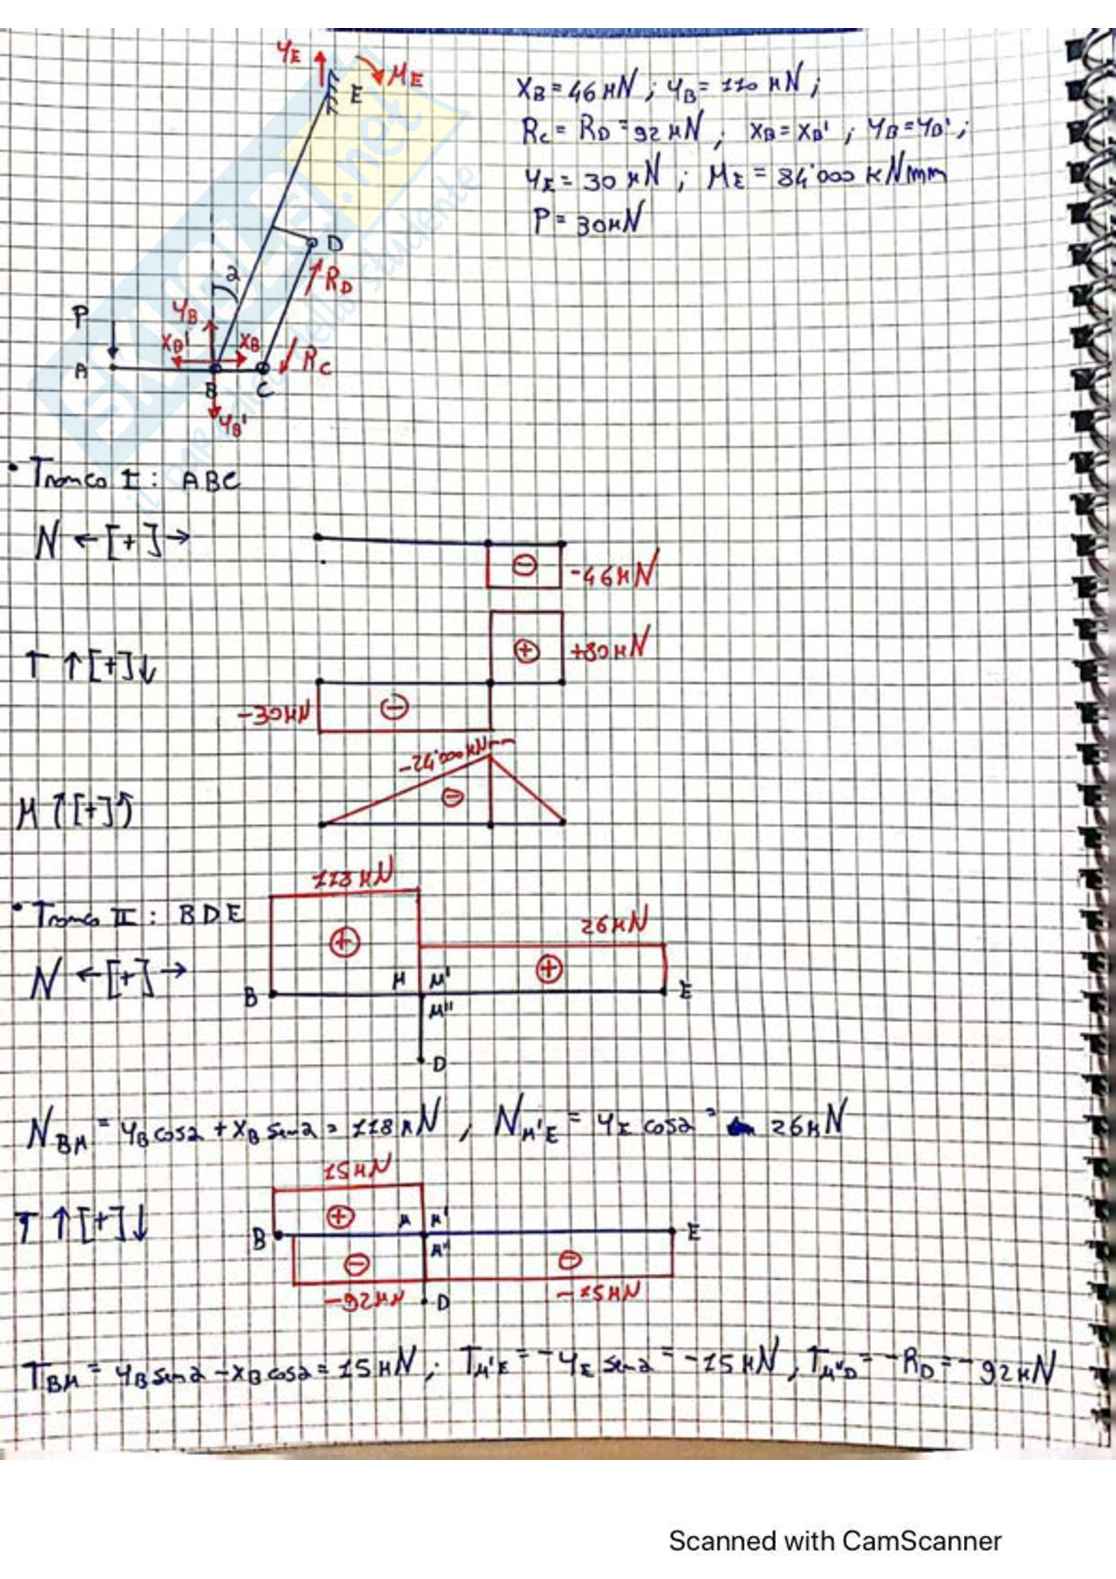 YE ME E
XB = 46 KN ; YB = 110 KN ;
RC = RD = 92 KN ; XB = XB' ; YB = YB' ;
YE = 30 KN ; ME = 84'000 kNmm
P = 30KN
D
α RD
P YB
XB' XB RC
A B C
YB'
• Tronco I : ABC
N ←[+]→
⊖ -46KN
T ↑[+]↓
⊕ +80KN
-30KN ⊖
-24'000KNmm
M ↑[+]↑ ⊖
118KN
• Tronco II : BDE
⊕ 26KN
N ←[+]→ ⊕
B M M' E
M"
D
NBM = YB cosα + XB senα = 118KN , NM'E = YE cosα = 26KN
15KN
T ↑[+]↓ ⊕
B M M' E
M"
⊖ ⊖
-92KN D -15KN
TBM = YB senα - XB cosα = 15KN ; TM'E = -YE senα = -15KN , TM"D = -RD = -92KN
Scanned with CamScanner